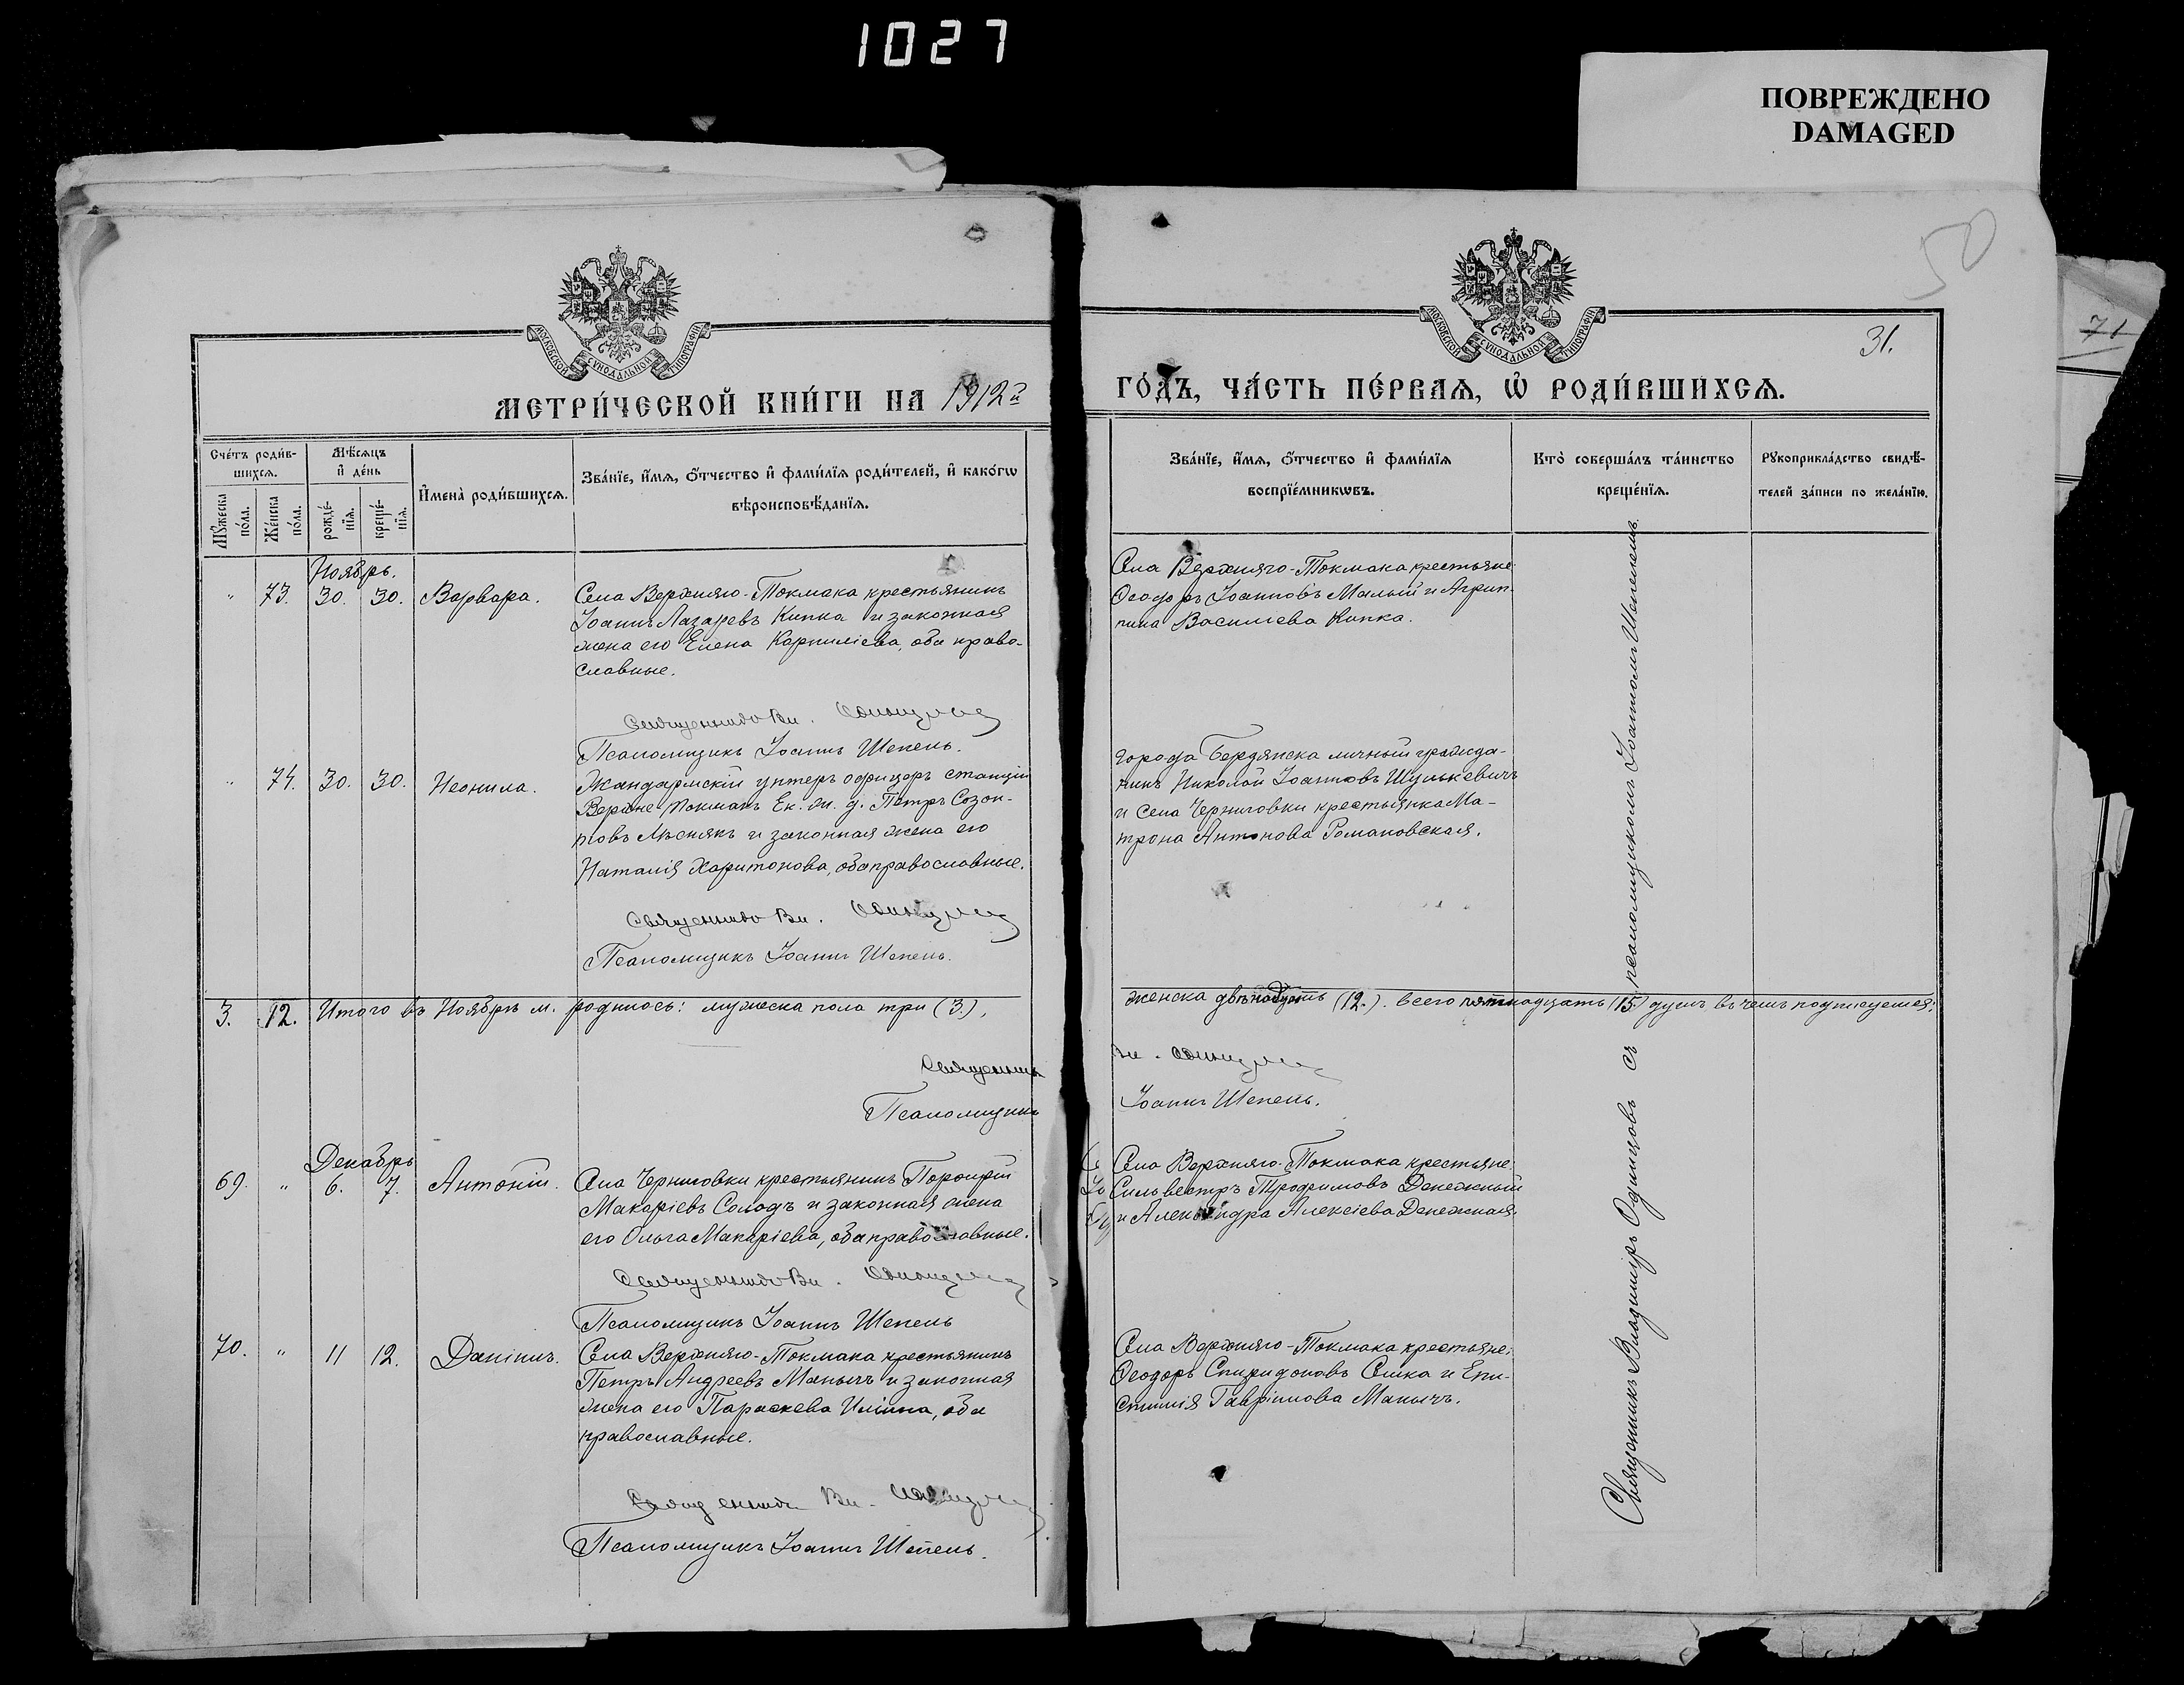 1027
ПОВРЕЖДЕНО
DAMAGED
50
71
31.
МОСКОВСКОЙ СУНОДАЛЬНОЙ ТИПОГРАФІИ
МОСКОВСКОЙ СУНОДАЛЬНОЙ ТИПОГРАФІИ
МЕТРИ́ЧЕСКОЙ КНИ́ГИ НА 1912й
ГО́ДЪ, ЧА́СТЬ ПЕ́РВАѦ, Ѡ҆ РОДИ́ВШИХСѦ.
Сче́тъ роди́в-
шихсѧ.
Мѣ́сѧцъ
и҆ де́нь
Мꙋ́жеска
по́ла.
Же́нска
по́ла.
рожде́-
нїѧ.
креще́-
нїѧ.
И҆мена̀ роди́вшихсѧ.
Зва́нїе, и҆́мѧ, ѻ҆́тчество и҆ фами́лїѧ роди́телей, и҆ како́гѡ
вѣроисповѣ́данїѧ.
Зва́нїе, и҆́мѧ, ѻ҆́тчество и҆ фами́лїѧ
воспрїе́мникѡвъ.
Кто̀ соверша́лъ та́инство
креще́нїѧ.
Рꙋкоприкла́дство свидѣ́-
телей за́писи по жела́нїю.
Ноябрь.
" 73. 30. 30. Варвара.
Села Верхняго-Токмака крестьянинъ
Іоаннъ Лазаревъ Кипка и законная
жена его Елена Корниліева, оба право-
славные.
Священникъ Вл. Одинцовъ
Псаломщикъ Іоаннъ Шепель.
Села Верхняго-Токмака крестьяне
Ѳеодоръ Іоанновъ Малый и Агрип-
пина Василіева Кипка.
" 74. 30. 30. Неонила.
Жандармскій унтеръ офицеръ станціи
Верхне-Токмакъ Ек. ж. д. Петръ Созон-
товъ Лѣснякъ и законная жена его
Наталія Харитонова, оба православные.
Священникъ Вл. Одинцовъ
Псаломщикъ Іоаннъ Шепель.
города Бердянска личный гражда-
нинъ Николай Іоанновъ Шулькевичъ
и села Черниговки крестьянка Ма-
трона Антонова Романовская.
3. 12. Итого въ Ноябрѣ м. родилось: мужеска пола три (3.),
женска двѣнадцать (12.). всего пятнадцать (15) душъ въ чемъ подписуемся:
Священникъ
Вл. Одинцовъ
Псаломщикъ
Іоаннъ Шепель.
Декабрь
69. " 6. 7. Антоній.
Села Черниговки крестьянинъ Порфирій
Макаріевъ Солодъ и законная жена
его Ольга Макаріева, оба православные.
Священникъ Вл. Одинцовъ
Псаломщикъ Іоаннъ Шепель
Села Верхняго-Токмака крестьяне:
Сильвестръ Трофимовъ Денежный
и Александра Алексіева Денежная.
70. " 11 12. Даніилъ.
Села Верхняго-Токмака крестьянинъ
Петръ Андреевъ Манычъ и законная
жена его Параскева Иліина, оба
православные.
Священникъ Вл. Одинцовъ
Псаломщикъ Іоаннъ Шепель.
Села Верхняго-Токмака крестьяне:
Ѳеодоръ Спиридоновъ Сашка и Епи-
стимія Гавріилова Манычъ.
Священникъ Владиміръ Одинцовъ съ псаломщикомъ Іоанномъ Шепелемъ.